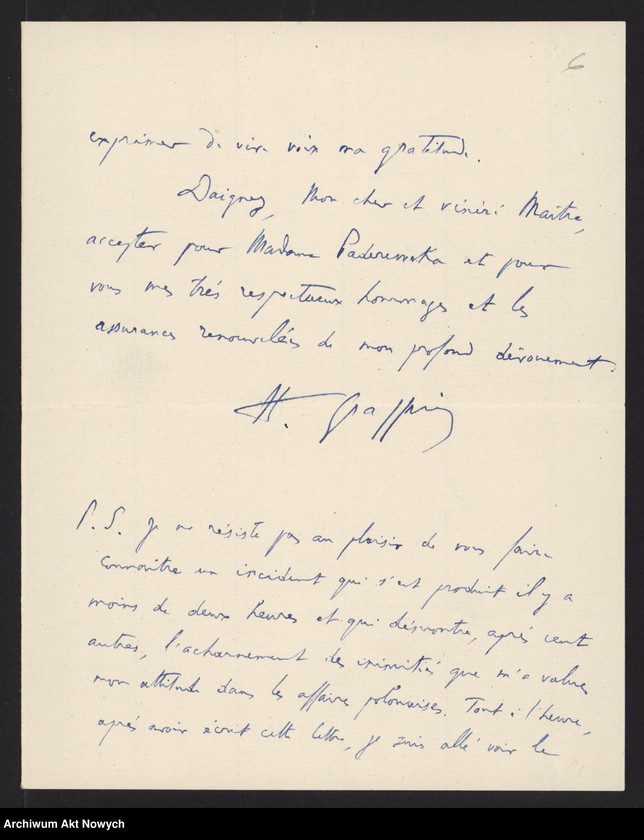 6
exprimer de vive voix ma gratitude.
Daignez, Mon cher et vénéré Maître,
accepter pour Madame Paderewska et pour
vous mes très respectueux hommages et les
assurances renouvelées de mon profond dévouement.
H. Grappin
P. S. Je ne résiste pas au plaisir de vous faire
connaître un incident qui s'est produit il y a
moins de deux heures et qui démontre, après cent
autres, l'acharnement des inimitiés que m'a values
mon attitude dans les affaires polonaises. Tout à l'heure,
après avoir écrit cette lettre, je suis allé voir le
Archiwum Akt Nowych